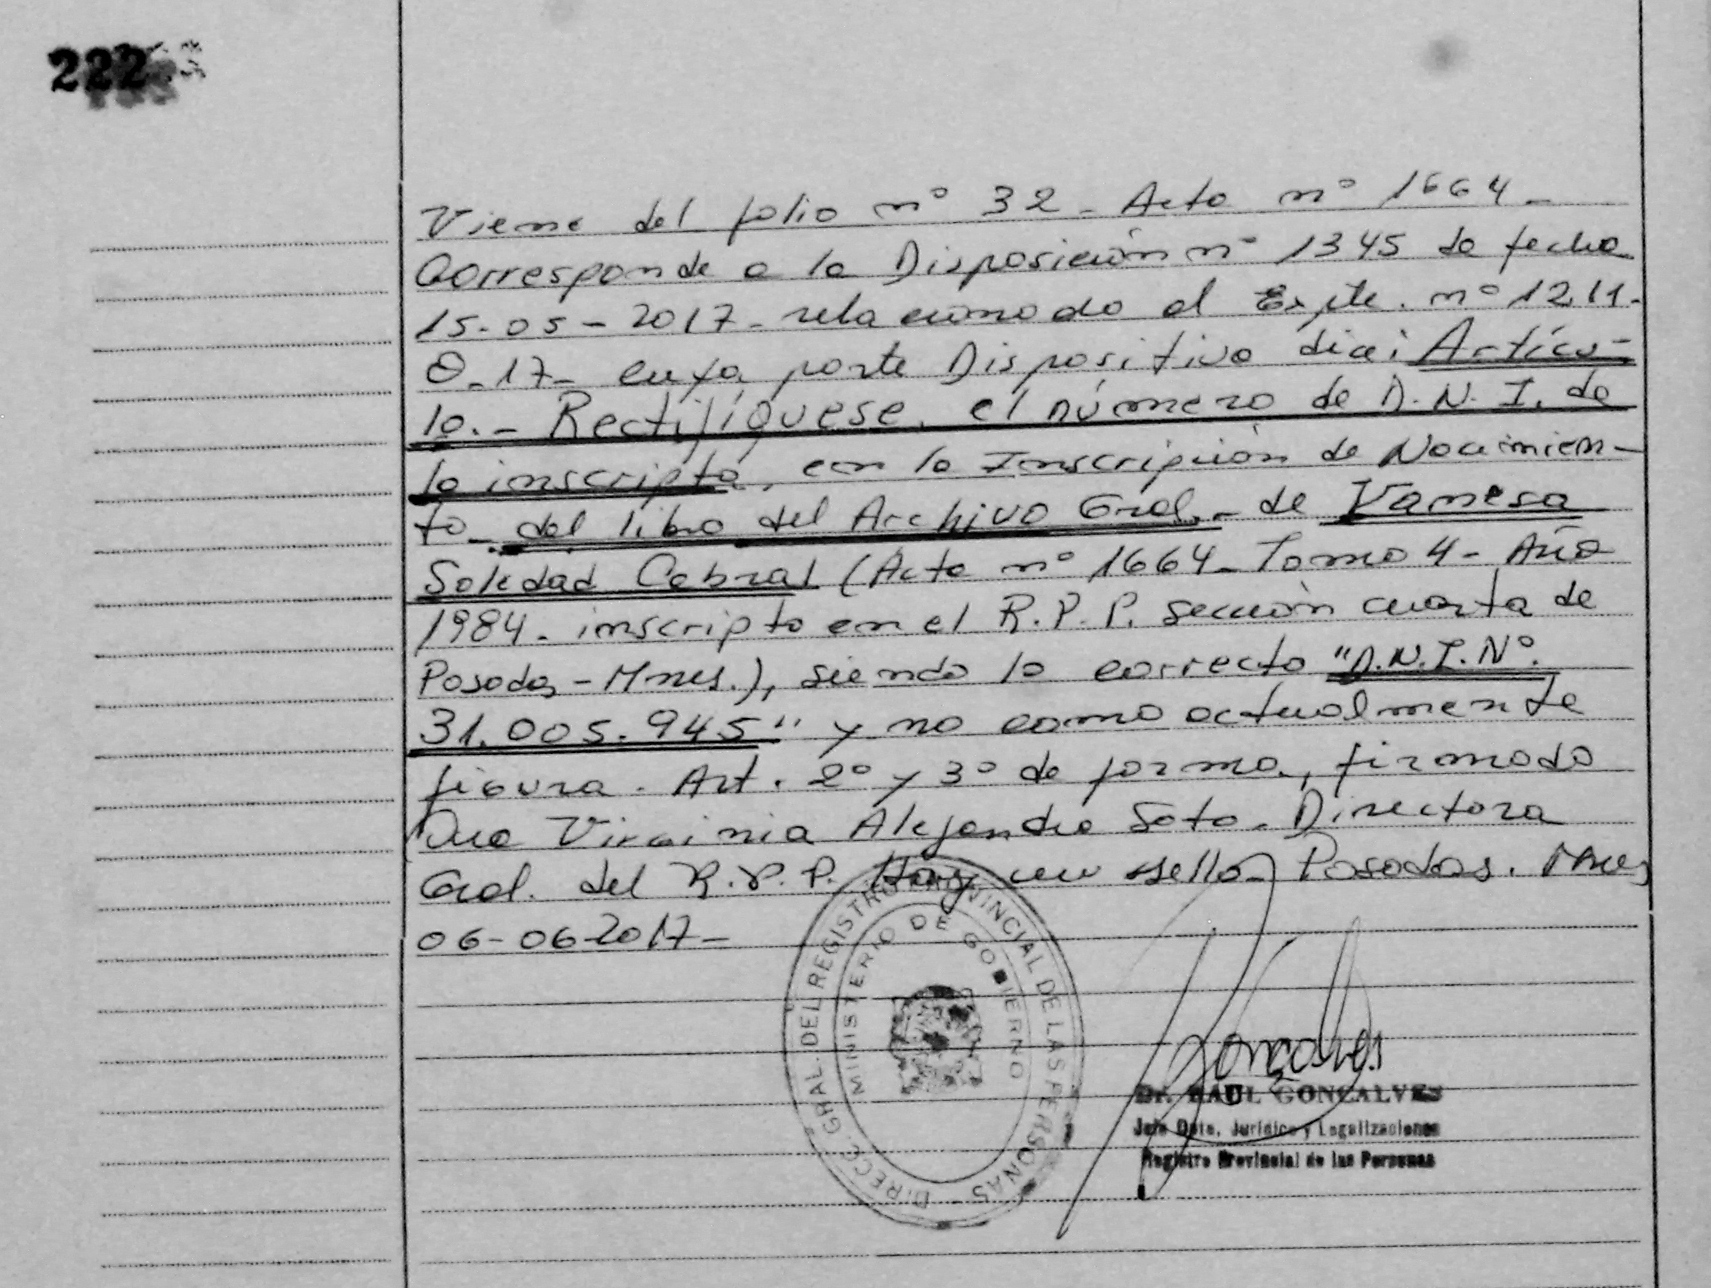 222
Viene del folio nº 32 - Acta nº 1664 -
Corresponde a la Disposición nº 1345 de fecha
15-05-2017 - relacionado al Expte. nº 1211-
O-17- cuya parte Dispositiva dice: Artícu-
lo.- Rectifíquese, el número de D.N.I. de
la inscripta, en la Inscripción de Nacimien-
to - del libro del Archivo Gral. - de Vanesa
Soledad Cabral (Acta nº 1664 - Tomo 4 - Año
1984 - inscripto en el R.P.P. sección cuarta de
Posadas - Mnes.), siendo lo correcto "D.N.I. Nº.
31.005.945" y no como actualmente
figura. Art. 2º y 3º de forma, firmado
Dra Virginia Alejandra Soto - Directora
Gral. del R.P.P. Hay un sello - Posadas. Mnes
06-06-2017-
DIRECC. GRAL. DEL REGISTRO PROVINCIAL DE LAS PERSONAS
MINISTERIO DE GOBIERNO
Gonçalves
Dr. RAUL GONÇALVES
Jefe Dpto. Jurídico y Legalizaciones
Registro Provincial de las Personas